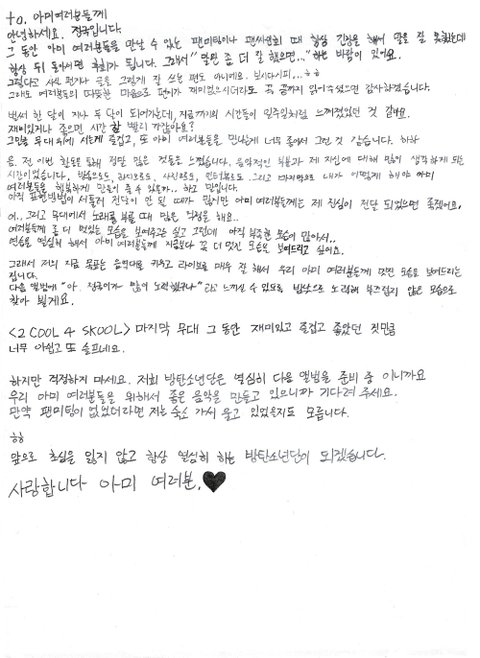 to. 아미여러분들께
안녕하세요. 정국입니다.
그 동안 아미 여러분들을 만날 수 있는 팬미팅이나 팬싸인회 때 항상 긴장을 해서 말을 잘 못했는데
항상 뒤 돌아서면 후회가 됩니다. 그래서 "말만 좀 더 잘 했으면..." 하는 바람이 있어요.
그렇다고 사실 편지나 글을 그렇게 잘 쓰는 편도 아니에요. 보시다시피...ㅎㅎ
그래도 여러분들의 따뜻한 마음으로 편지가 재미없으시더라도 꼭 끝까지 읽어주셨으면 감사하겠습니다.
벌써 한 달이 지나 두 달이 되어가는데, 지금까지의 시간들이 일주일처럼 느껴졌었던 것 같아요.
재미있거나 좋으면 시간 참 빨리 가잖아요?
그만큼 무대 위에 서는게 즐겁고, 또 아미 여러분들을 만나는게 너무 좋아서 그런 것 같습니다. 하하
음. 전 이번 활동을 통해 정말 많은 것들을 느꼈습니다. 음악적인 부분과 제 자신에 대해 많이 생각하게 되는
시간이었습니다. 방송으로도, 라디오로도, 사진으로도, 인터뷰로도. 그리고 마지막으로 내가 어떻게 해야 아미
여러분들을 행복하게 만들어 줄 수 있을까.. 하고 말입니다.
아직 표현방법이 서툴러 전달이 안 된 때가 많지만 아미 여러분들께는 제 진심이 전달 되었으면 좋겠어요.
어.. 그리고 무대에서 노래를 부를 때 많은 걱정을 해요..
여러분들께 좀 더 멋있는 모습을 보여주고는 싶고 그런데 아직 부족한 모습이 많아서..
연습을 열심히 해서 아미 여러분들께 지금보다 꼭 더 멋진 모습을 보여드리고 싶어요.
그래서 저의 지금 목표는 음역대를 키우고 라이브를 매우 잘 해서 우리 아미 여러분들께 멋진 모습을 보여드리는
겁니다.
다음 앨범에 "아. 정국이가 많이 노력했구나" 라고 느끼실 수 있으도록 밤낮으로 노력해 부끄럽지 않은 모습으로
찾아 뵐게요.
<2 COOL 4 SKOOL> 마지막 무대 그 동안 재미있고 즐겁고 좋았던 것만큼
너무 아쉽고 또 슬프네요.
하지만 걱정하지 마세요. 저희 방탄소년단은 열심히 다음 앨범을 준비 중 이니까요
우리 아미 여러분들을 위해서 좋은 음악을 만들고 있으니까 기다려 주세요.
만약 팬미팅이 없었더라면 저는 숙소 가서 울고 있었을지도 모릅니다.
ㅎㅎ
앞으로 초심을 잃지 않고 항상 열심히 하는 방탄소년단이 되겠습니다.
사랑합니다 아미 여러분.♥